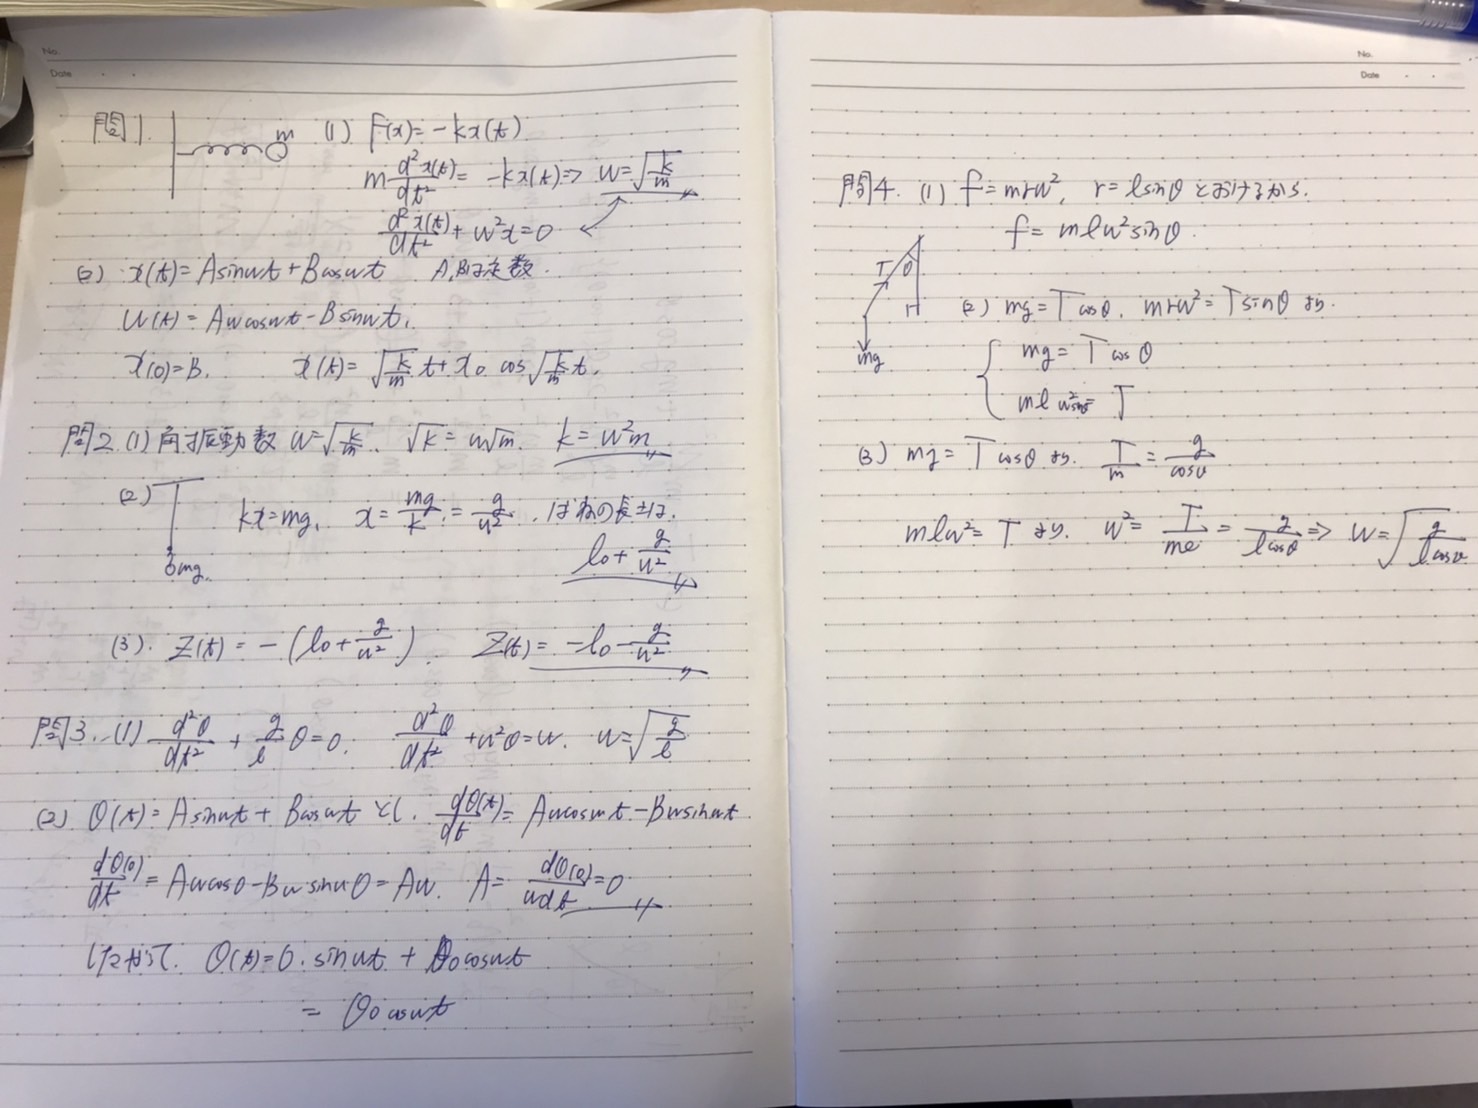 No.
Date
問1. m (1) F(x)=-kx(t)
m d²x(t)/dt² = -kx(t) ⇒ ω=√(k/m)
d²x(t)/dt² + ω²x=0
(2) x(t)=Asinωt+Bcosωt A,Bは定数.
v(t)=Aωcosωt-Bsinωt.
x(0)=B. x(t)=√(k/m) t+x₀ cos√(k/m) t.
問2.(1)角振動数 ω=√(k/m). √k=ω√m. k=ω²m
(2) kx=mg. x=mg/k=g/ω². ばねの長さは.
mg.
l₀+g/ω²
(3). Z(t)=-(l₀+g/ω²). Z(t)=-l₀-g/ω²
問3.(1) d²θ/dt²+g/l θ=0. d²θ/dt²+ω²θ=ω. ω=√(g/l)
(2) θ(t)=Asinωt+Bcosωtとし. dθ(t)/dt=Aωcosωt-Bωsinωt
dθ(0)/dt=Aωcos0-Bωsinω0=Aω. A=dθ(0)/ωdt=0
したがって. θ(t)=0・sinωt+θ₀cosωt
=θ₀cosωt
No.
Date
問4.(1) f=mrω², r=lsinθとおけるから.
f=mlω²sinθ.
T θ
mg
(2) mg=Tcosθ. mrω²=Tsinθより.
mg=Tcosθ
mlω²=T
(3) mg=Tcosθより. T/m=g/cosθ
mlω²=Tより. ω²=T/ml=g/lcosθ⇒ω=√(g/lcosθ)